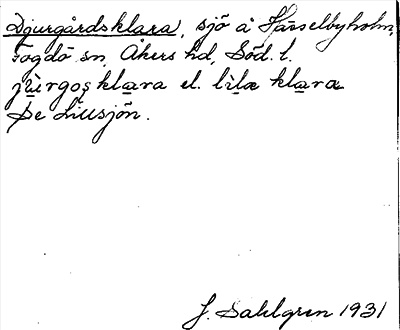 Djurgårdsklara, sjö å Hässelbyholm,
Fogdö sn, Åkers hd, Söd. l.
jùrgoşklara el. lìlæ klara
Se Lillsjön.
J. Sahlgren 1931